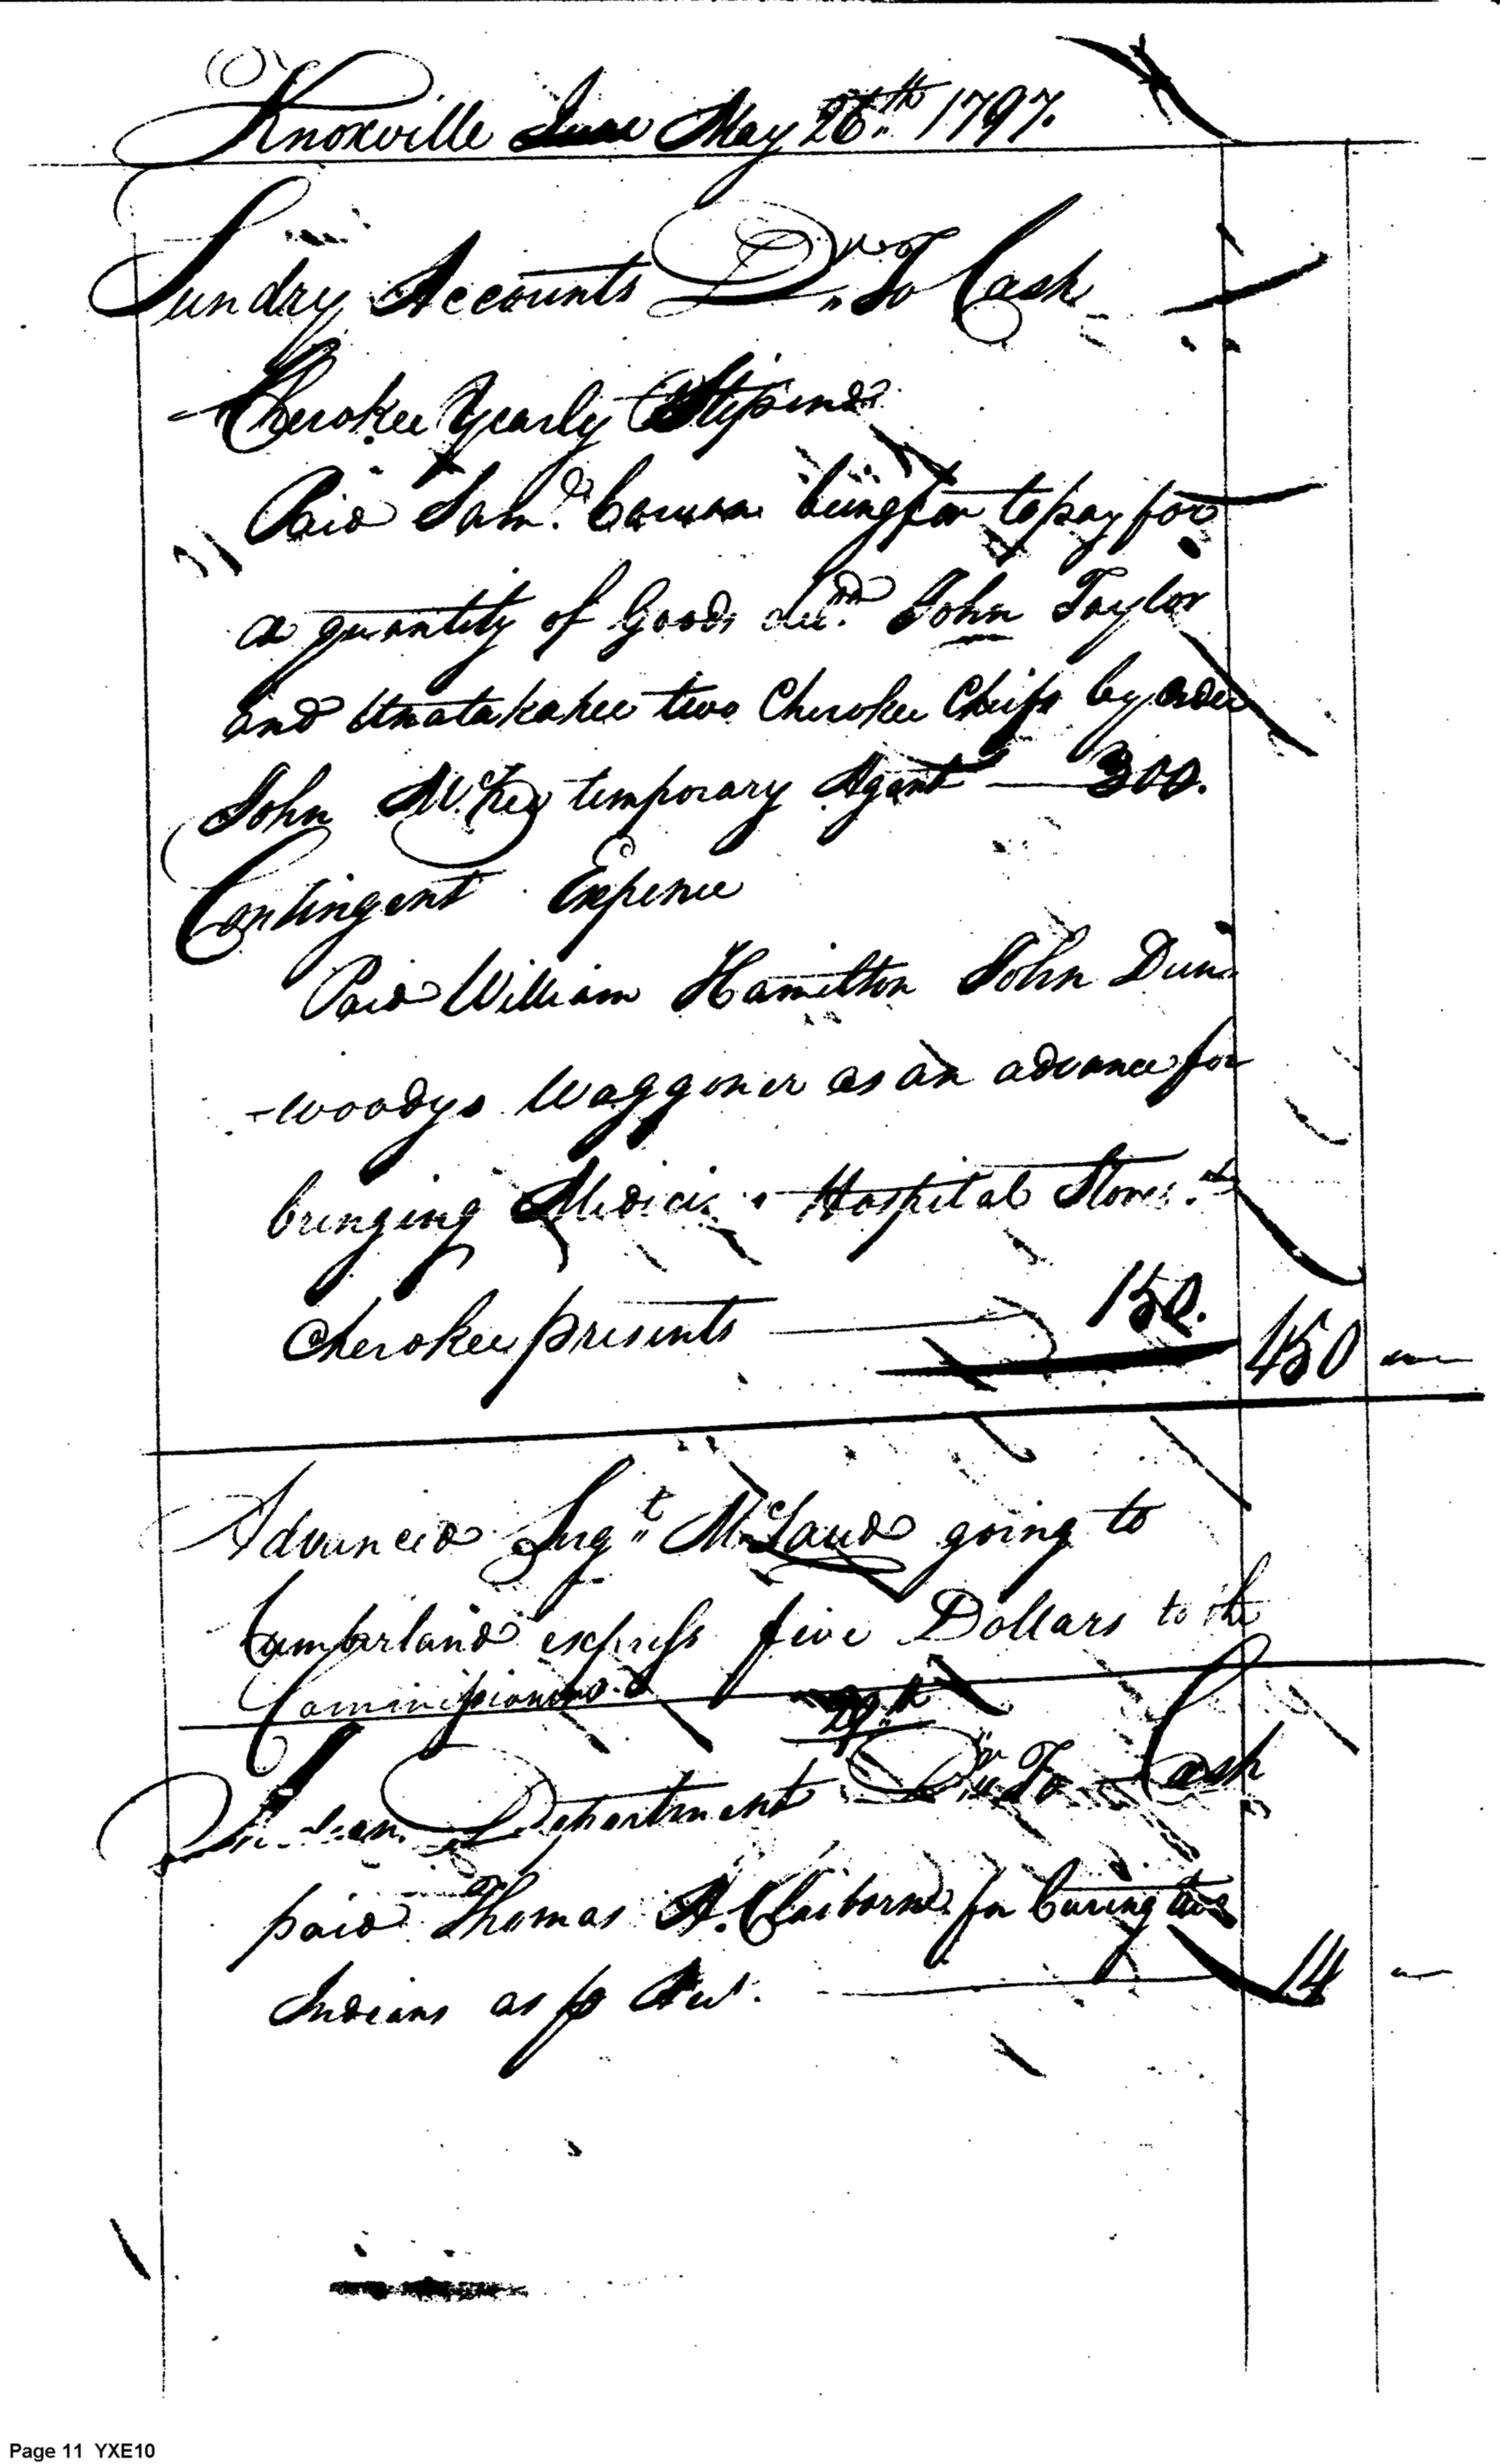 Knoxville June May 26th 1797.
Sundry Accounts Dr. To Cash
Cherokee Yearly Stipend
Paid Saml. Cowan being for to pay for
a quantity of Goods deld. John Taylor
and two Cherokee Chiefs by order
John McKee temporary Agent — 300.
Contingent Expence
Paid William Hamilton John Dun
-woodys Waggoner as an advance for
bringing Hospital Stores &
Cherokee presents — 150. 450
Advanced Sergt. going to
Cumberland express five Dollars to the
Commissioners
29th
Indian Department Dr. To Cash
paid Thomas A. Claiborne for Curing two
Indians as p — 14 —
Page 11 YXE10